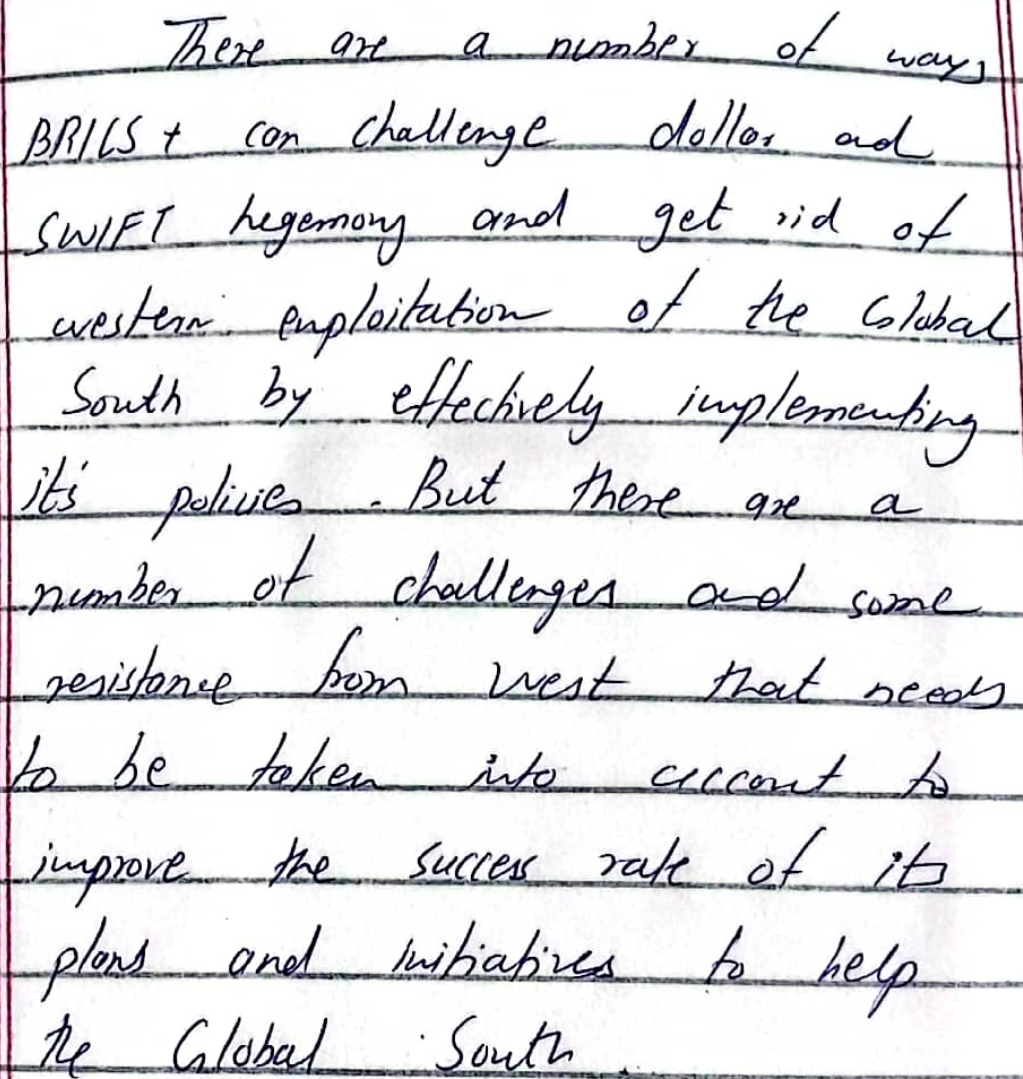 There are a number of ways
BRICS + can challenge dollar ad
SWIFT hegemony and get rid of
western exploitation of the Global
South by effectively implementing
it's policies . But there are a
number of challenges and some
resistance from West that needs
to be taken into account to
improve the success rate of its
plans and initiatives to help
the Global South .